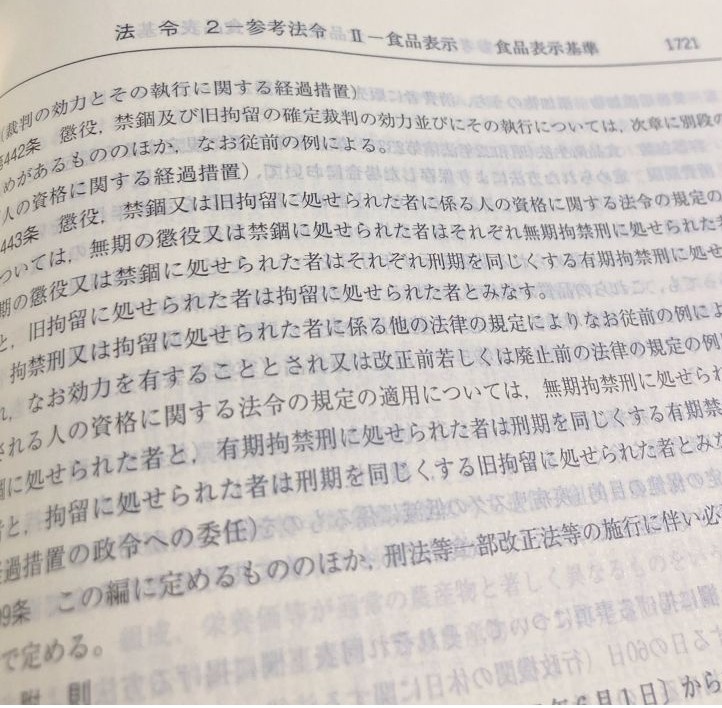 法 令 2－参考法令 Ⅱ－食品表示 食品表示基準 1721
(裁判の効力とその執行に関する経過措置)
442条 懲役，禁錮及び旧拘留の確定裁判の効力並びにその執行については，次章に別段の
めがあるもののほか，なお従前の例による。
人の資格に関する経過措置)
443条 懲役，禁錮又は旧拘留に処せられた者に係る人の資格に関する法令の規定の
ついては，無期の懲役又は禁錮に処せられた者はそれぞれ無期拘禁刑に処せられた
期の懲役又は禁錮に処せられた者はそれぞれ刑期を同じくする有期拘禁刑に処せ
と，旧拘留に処せられた者は拘留に処せられた者とみなす。
拘禁刑又は拘留に処せられた者に係る他の法律の規定によりなお従前の例によ
れ，なお効力を有することとされ又は改正前若しくは廃止前の法律の規定の例
される人の資格に関する法令の規定の適用については，無期拘禁刑に処せられ
に処せられた者と，有期拘禁刑に処せられた者は刑期を同じくする有期禁
者と，拘留に処せられた者は刑期を同じくする旧拘留に処せられた者とみ
経過措置の政令への委任)
09条 この編に定めるもののほか，刑法等一部改正法等の施行に伴い必
で定める。
附 則
年6月1日〕から